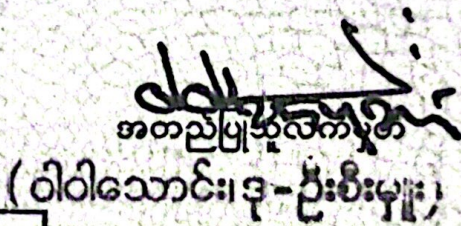 အတည်ပြုသူလက်မှတ်
(ဝါဝါသောင်း၊ ဒု-ဦးစီးမှူး)